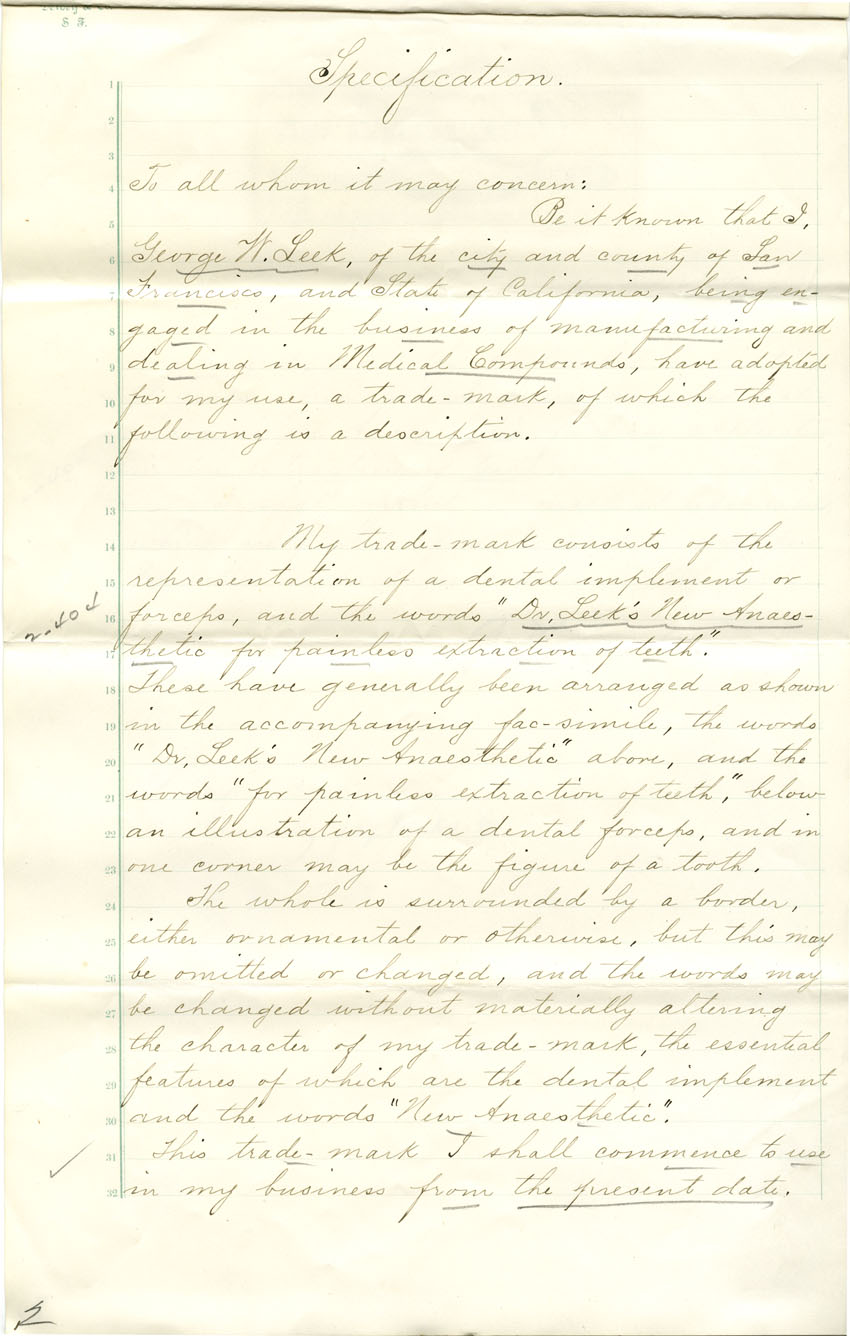 S F.
Specification.
1
2
3
4 To all whom it may concern:
5 Be it known that I,
6 George W. Leek, of the city and county of San
7 Francisco, and State of California, being en-
8 gaged in the business of manufacturing and
9 dealing in Medical Compounds, have adopted
10 for my use, a trade-mark, of which the
11 following is a description.
12
13
14 My trade-mark consists of the
15 representation of a dental implement or
2-404
16 forceps, and the words "Dr. Leek's New Anaes-
17 thetic for painless extraction of teeth".
18 These have generally been arranged as shown
19 in the accompanying fac-simile, the words
20 "Dr. Leek's New Anaesthetic" above, and the
21 words "for painless extraction of teeth", below
22 an illustration of a dental forceps, and in
23 one corner may be the figure of a tooth.
24 The whole is surrounded by a border,
25 either ornamental or otherwise, but this may
26 be omitted or changed, and the words may
27 be changed without materially altering
28 the character of my trade-mark, the essential
29 features of which are the dental implement
30 and the words "New Anaesthetic".
31 This trade-mark I shall commence to use
32 in my business from the present date.
2